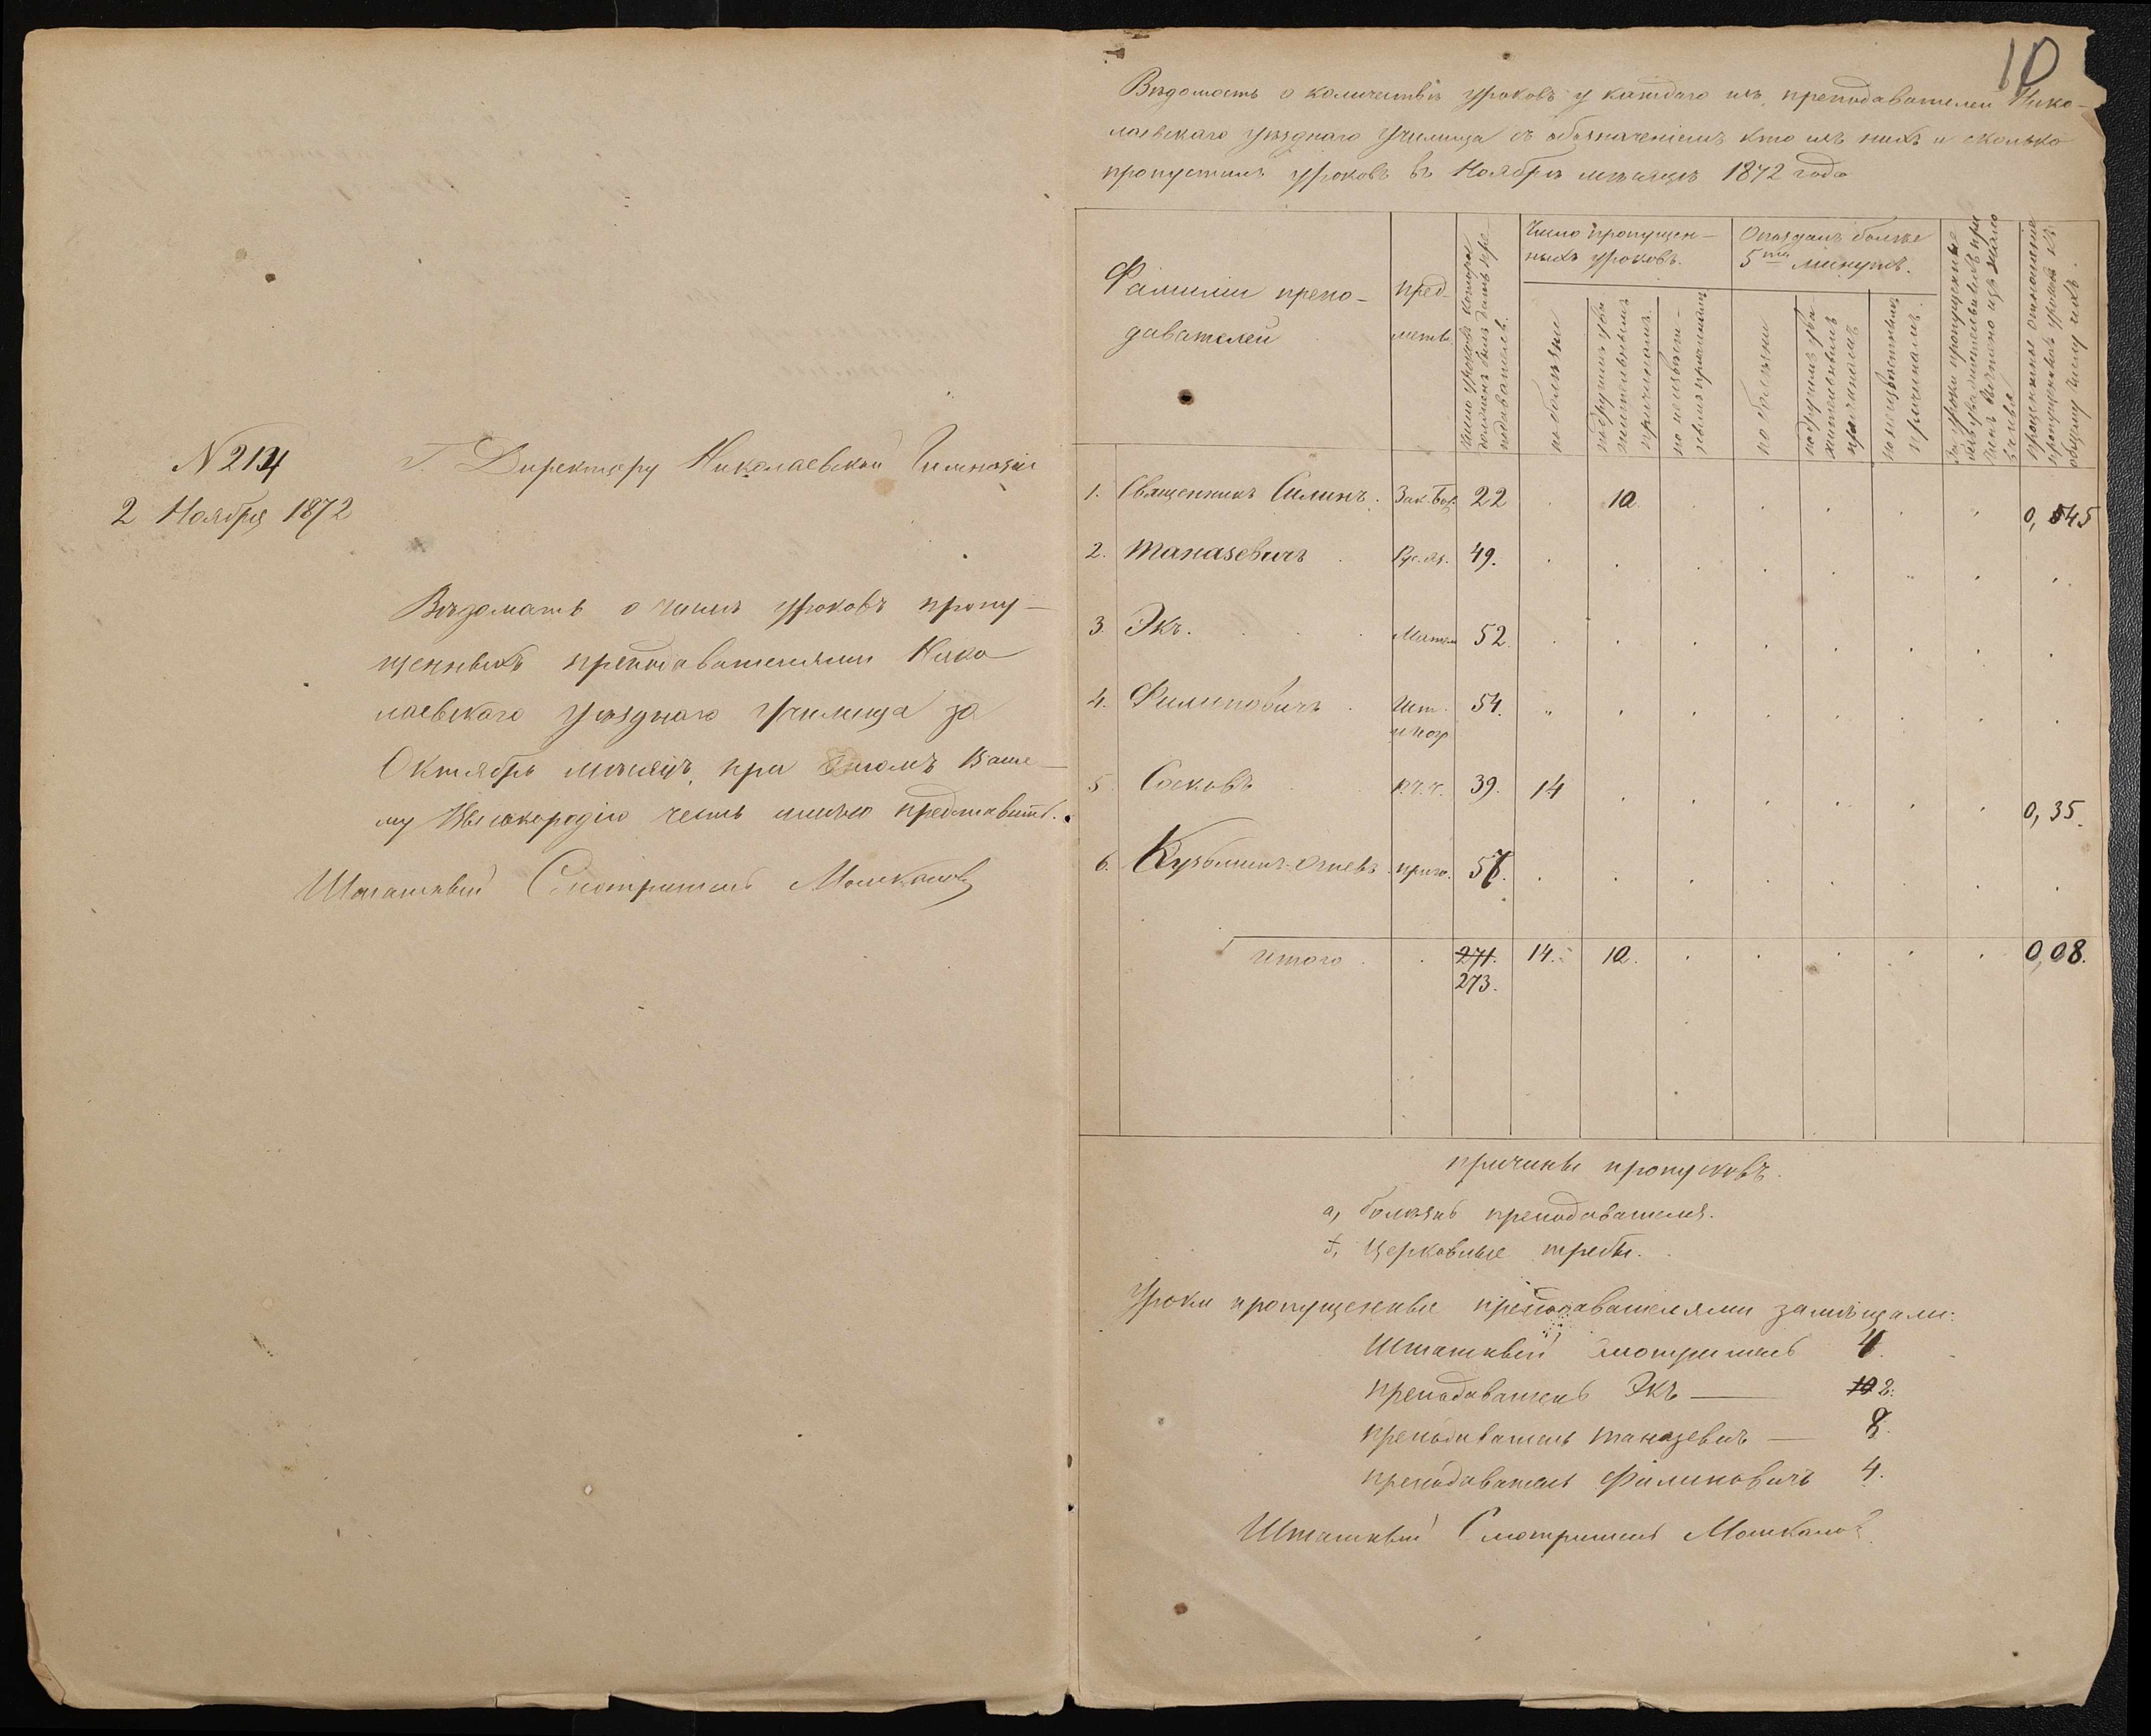 № 214
2 Ноября 1872
Г. Директору Николаевской Гимназіи
Вѣдомость о числѣ уроковъ пропу-
щенныхъ преподавателями Нико
лаевскаго уѣзднаго Училища за
Октябрь мѣсяцъ, при этомъ Ваше-
му Высокородію честь имѣю представить.
Штатный Смотритель Машкаловъ
10
Вѣдомость о количествѣ уроковъ у каждаго изъ преподавателей Нико-
лаевскаго уѣзднаго Училища съ обозначеніемъ кто изъ нихъ и сколько
пропустилъ уроковъ въ Ноябрѣ мѣсяцѣ 1872 года
Фамиліи препо-
давателей
пред-
меты.
Число уроковъ которое
долженъ былъ дать пре-
подаватель.
Число пропущен-
ныхъ уроковъ.
по болѣзни
по другимъ ува
жительнымъ
причинамъ.
по неизвѣст-
нымъ причинамъ
Опоздалъ болѣе
5ти минутъ.
по болѣзни
по другимъ ува-
жительнымъ
причинамъ
по неизвѣстнымъ
причинамъ.
За уроки пропущенные
чинъ вычтено изъ жало
процентное отношеніе
пропущенныхъ уроковъ къ
общему числу ихъ.
1. Священникъ Силинъ. Зак. Бож. 22 10 0,545
2. Таназевичъ Рус. яз. 49.
3. Экъ. Матем 52.
4. Филиповичъ Ист. 54.
и геогр
5 Сосковъ 39. 14 0,35.
6. Кузьминъ-Огневъ приго. 57.
Итого 271. 14. 10. 0,08.
273.
причины пропусковъ.
а, болѣзнь преподавателя.
б, Церковные требы.
Уроки пропущенные преподавателями замѣщали:
Штатный смотритель 4.
преподаватель Экъ — 10 8.
преподаватель Таназевичъ — 8.
преподаватель Филиповичъ 4.
Штатный Смотритель Машкаловъ